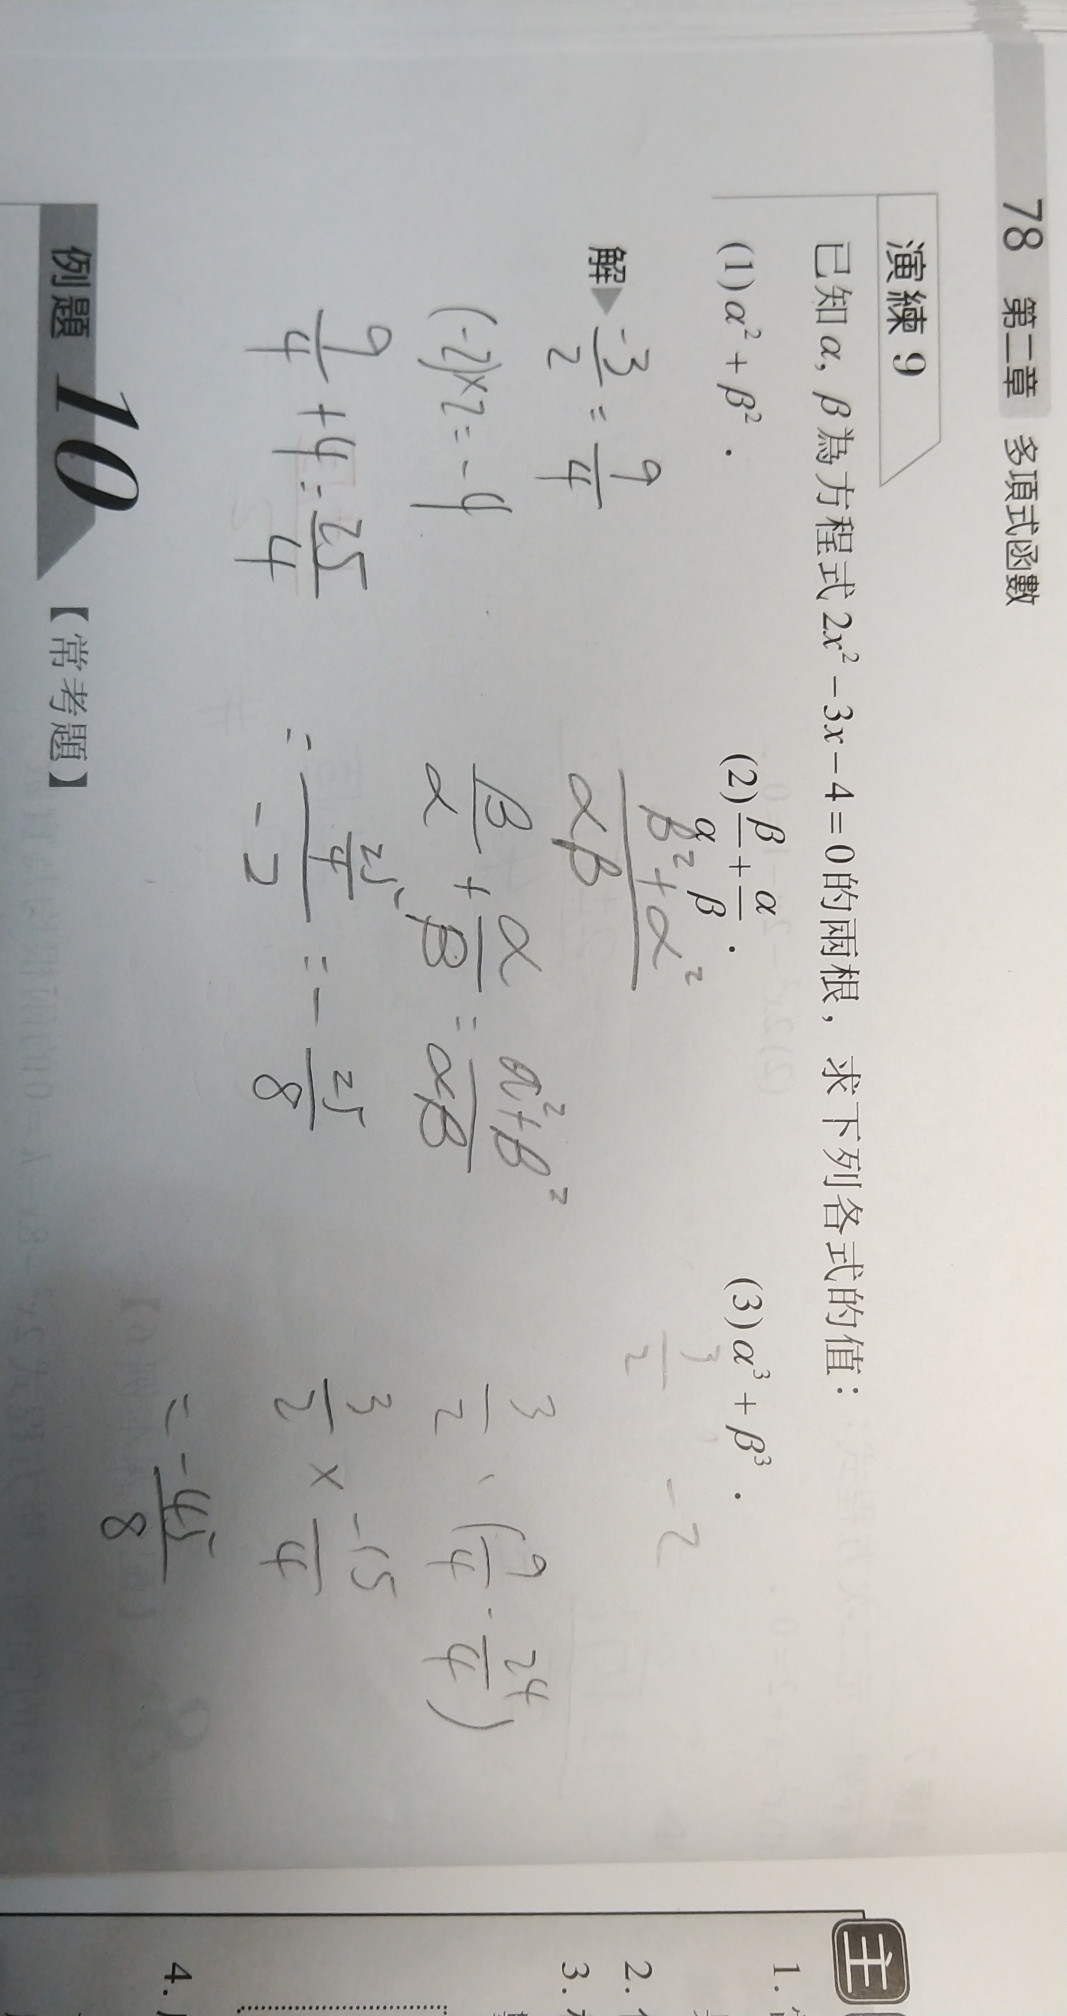 78 第二章 多項式函數
演練 9
已知 α, β 為方程式 2x² − 3x − 4 = 0 的兩根，求下列各式的值：
(1) α² + β² .
(2) β/α + α/β .
(3) α³ + β³ .
解▶
-3/2 = 9/4
(-2)×2 = -4
9/4 + 4 = 25/4
β² + α² / αβ
β/α + α/β = α² + β² / αβ
= 25/4 / -2 = - 25/8
3/2
-2
3/2 · (9/4 - 24/4)
3/2 × -15/4
= -45/8
例題 10 【常考題】
主
1.
2.
3.
4.